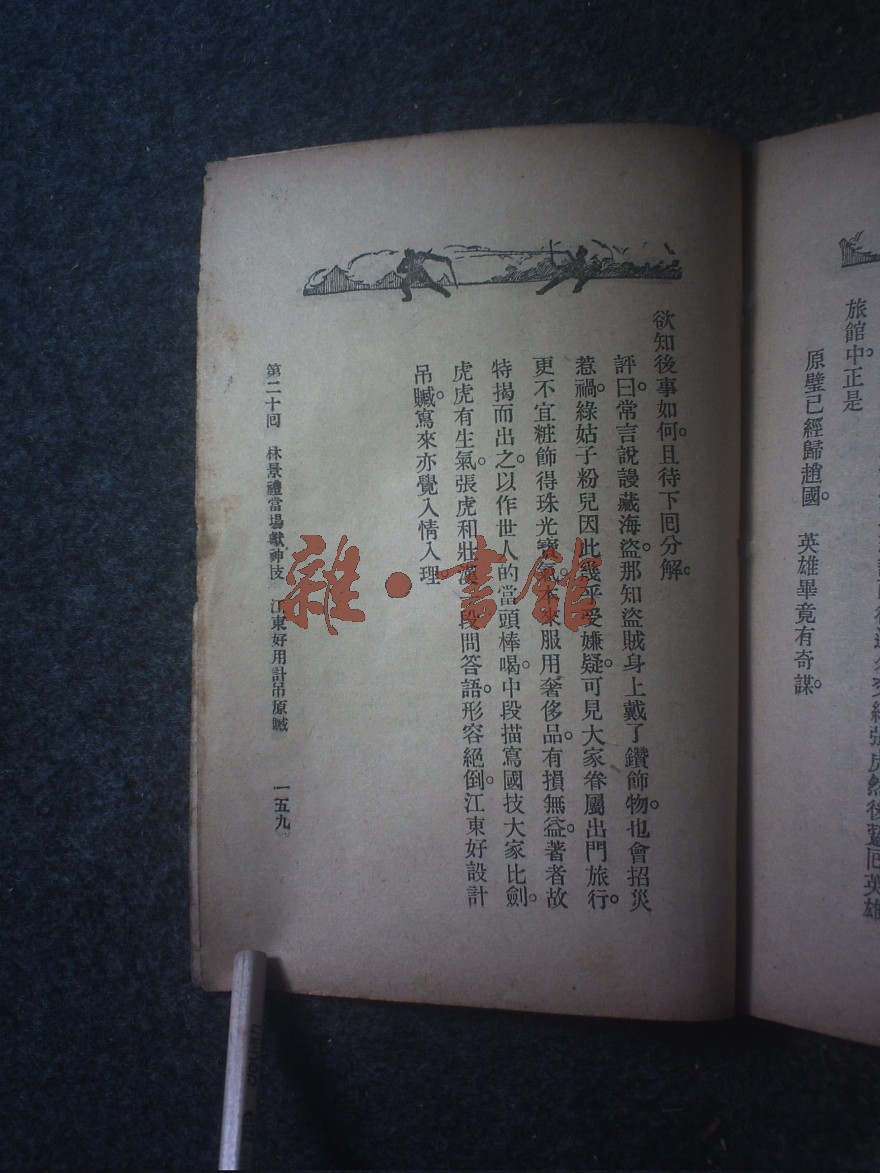 旅館中正是
原璧已經歸趙國。英雄畢竟有奇謀。
欲知後事如何。且待下回分解。
評曰常言說謾藏海盜。那知盜賊身上戴了鑽飾物。也會招災
惹禍。綠姑子粉兒因此幾乎受嫌疑。可見大家眷屬出門旅行。
更不宜粧飾得珠光寶氣。本來服用奢侈品。有損無益。著者故
特揭而出之。以作世人的當頭棒喝。中段描寫國技大家比劍。
虎虎有生氣。張虎和壯漢一段問答語。形容絕倒。江東好設計
吊贓。寫來亦覺入情入理
第二十回 林景禮當場獻神技 江東好用計吊原贓 一五九
雜·書館